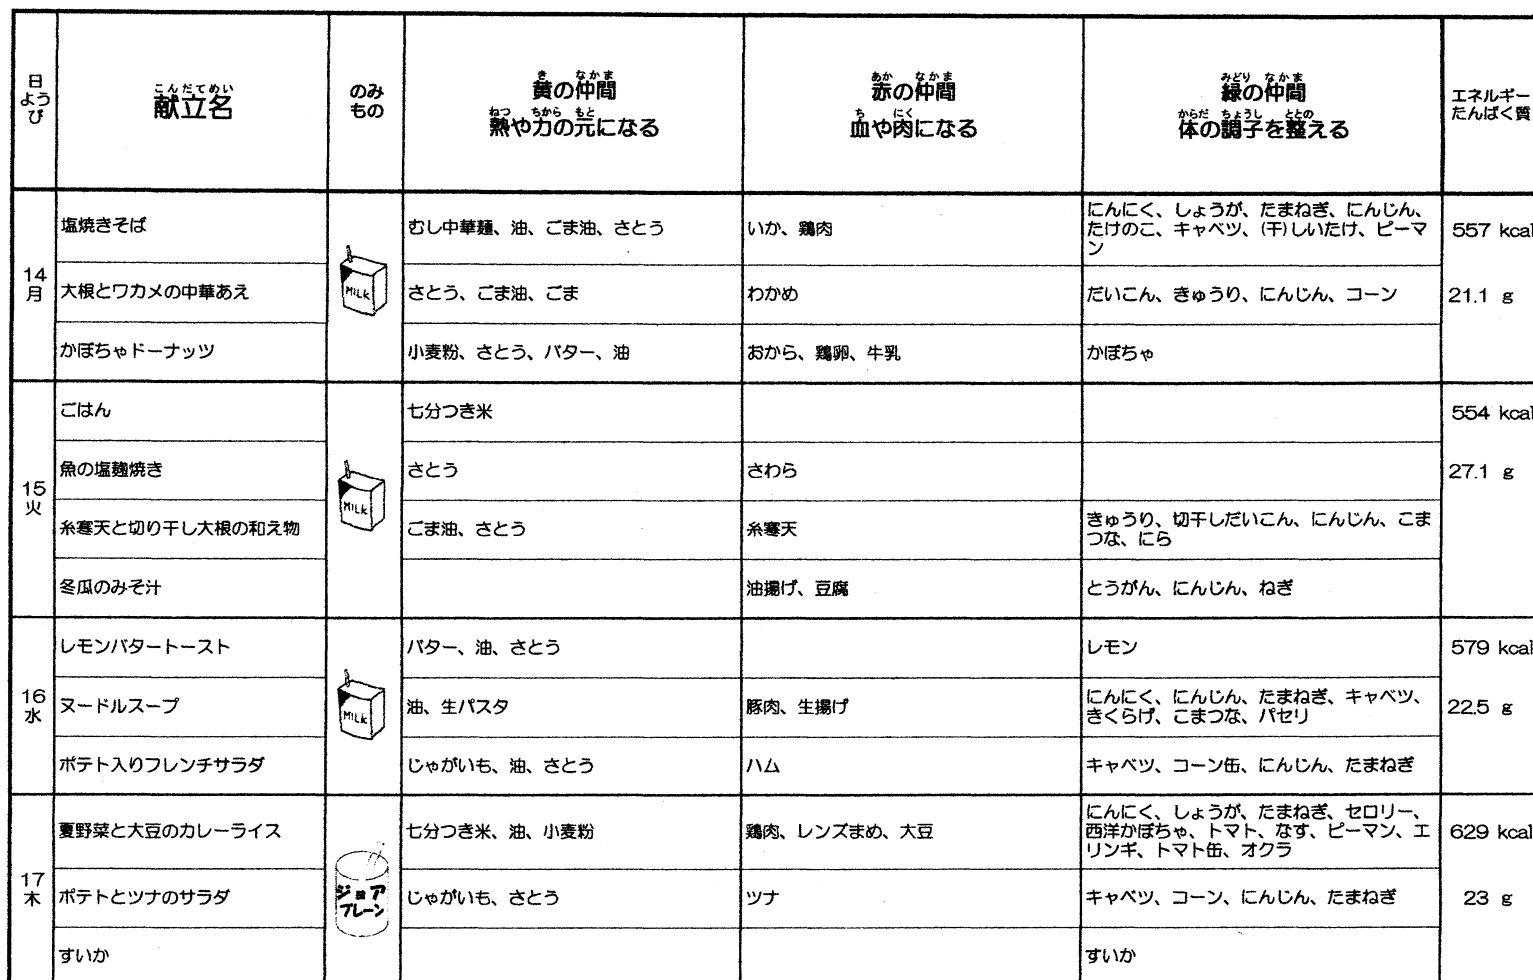 日
よう
び
こんだてめい
献立名
のみ
もの
き なかま
黄の仲間
ねつ ちから もと
熱や力の元になる
あか なかま
赤の仲間
ち にく
血や肉になる
みどり なかま
緑の仲間
からだ ちょうし ととの
体の調子を整える
エネルギー
たんぱく質
14
月
塩焼きそば
MILK
むし中華麺、油、ごま油、さとう
いか、鶏肉
にんにく、しょうが、たまねぎ、にんじん、
たけのこ、キャベツ、(干)しいたけ、ピーマ
ン
557 kcal
大根とワカメの中華あえ
さとう、ごま油、ごま
わかめ
だいこん、きゅうり、にんじん、コーン
21.1 g
かぼちゃドーナッツ
小麦粉、さとう、バター、油
おから、鶏卵、牛乳
かぼちゃ
15
火
ごはん
MILK
七分つき米
554 kcal
魚の塩麹焼き
さとう
さわら
27.1 g
糸寒天と切り干し大根の和え物
ごま油、さとう
糸寒天
きゅうり、切干しだいこん、にんじん、こま
つな、にら
冬瓜のみそ汁
油揚げ、豆腐
とうがん、にんじん、ねぎ
16
水
レモンバタートースト
MILK
バター、油、さとう
レモン
579 kcal
ヌードルスープ
油、生パスタ
豚肉、生揚げ
にんにく、にんじん、たまねぎ、キャベツ、
きくらげ、こまつな、パセリ
22.5 g
ポテト入りフレンチサラダ
じゃがいも、油、さとう
ハム
キャベツ、コーン缶、にんじん、たまねぎ
17
木
夏野菜と大豆のカレーライス
ジョア
プレーン
七分つき米、油、小麦粉
鶏肉、レンズまめ、大豆
にんにく、しょうが、たまねぎ、セロリー、
西洋かぼちゃ、トマト、なす、ピーマン、エ
リンギ、トマト缶、オクラ
629 kcal
ポテトとツナのサラダ
じゃがいも、さとう
ツナ
キャベツ、コーン、にんじん、たまねぎ
23 g
すいか
すいか